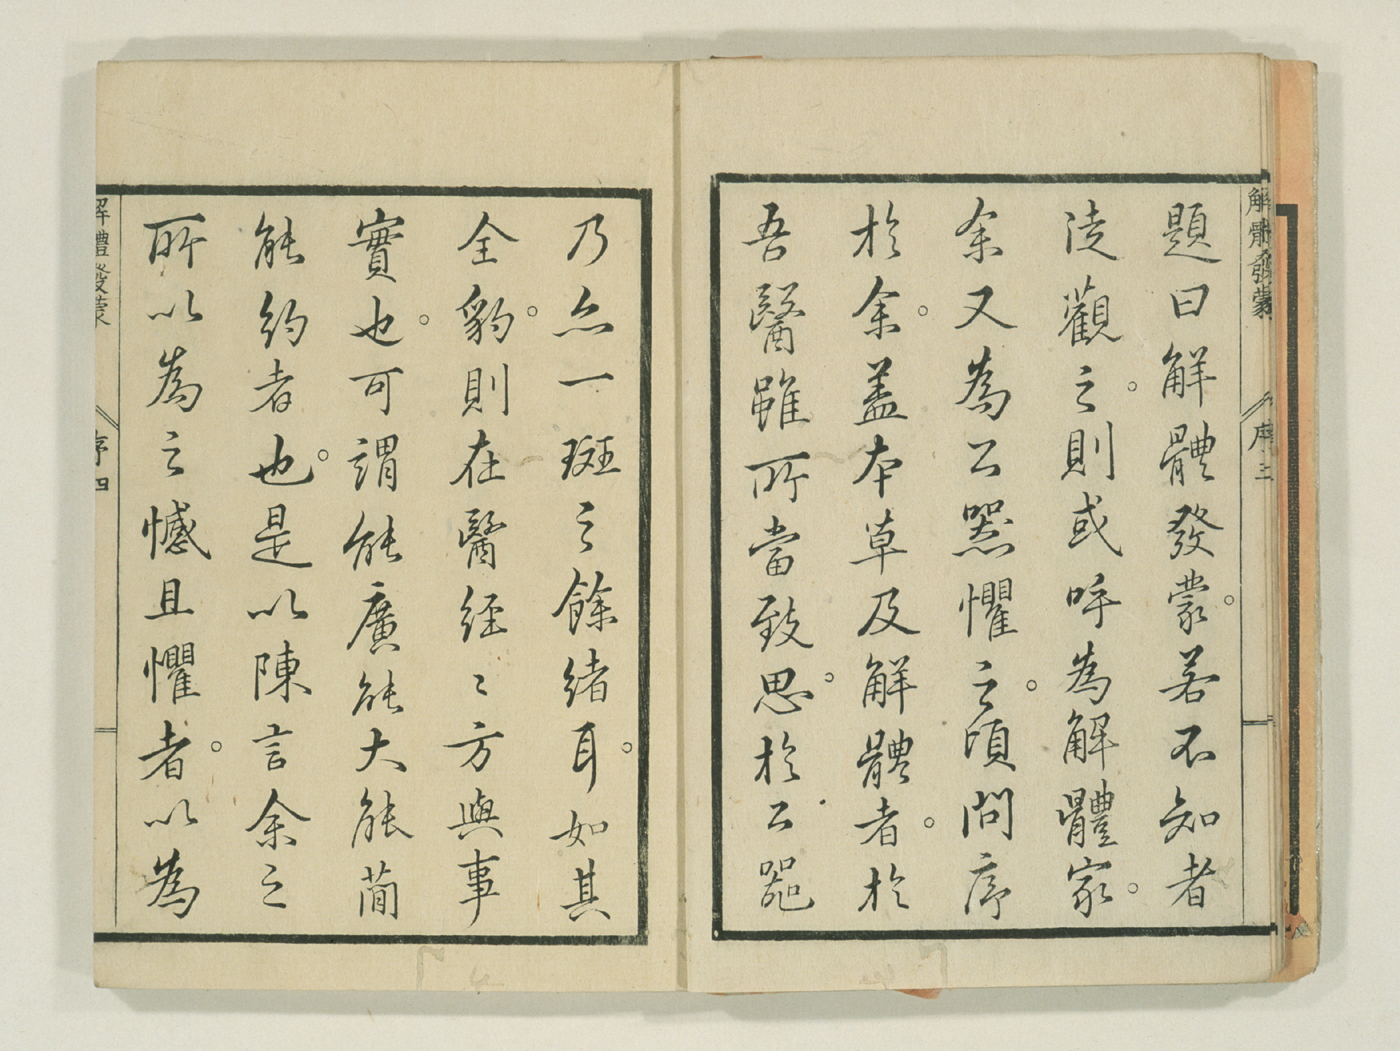 解體發蒙
序三
題曰解體發蒙。若不知者
從觀之。則或呼爲解體家。
余又爲公器懼之。頃問序
於余。蓋本草及解體者。於
吾醫雖所當致思。於公器
乃亦一斑之餘緒耳。如其
全豹。則在醫經〻方與事
實也。可謂能廣能大能簡
能約者也。是以陳言余之
所以爲之憾且懼者。以爲
解體發蒙
序四